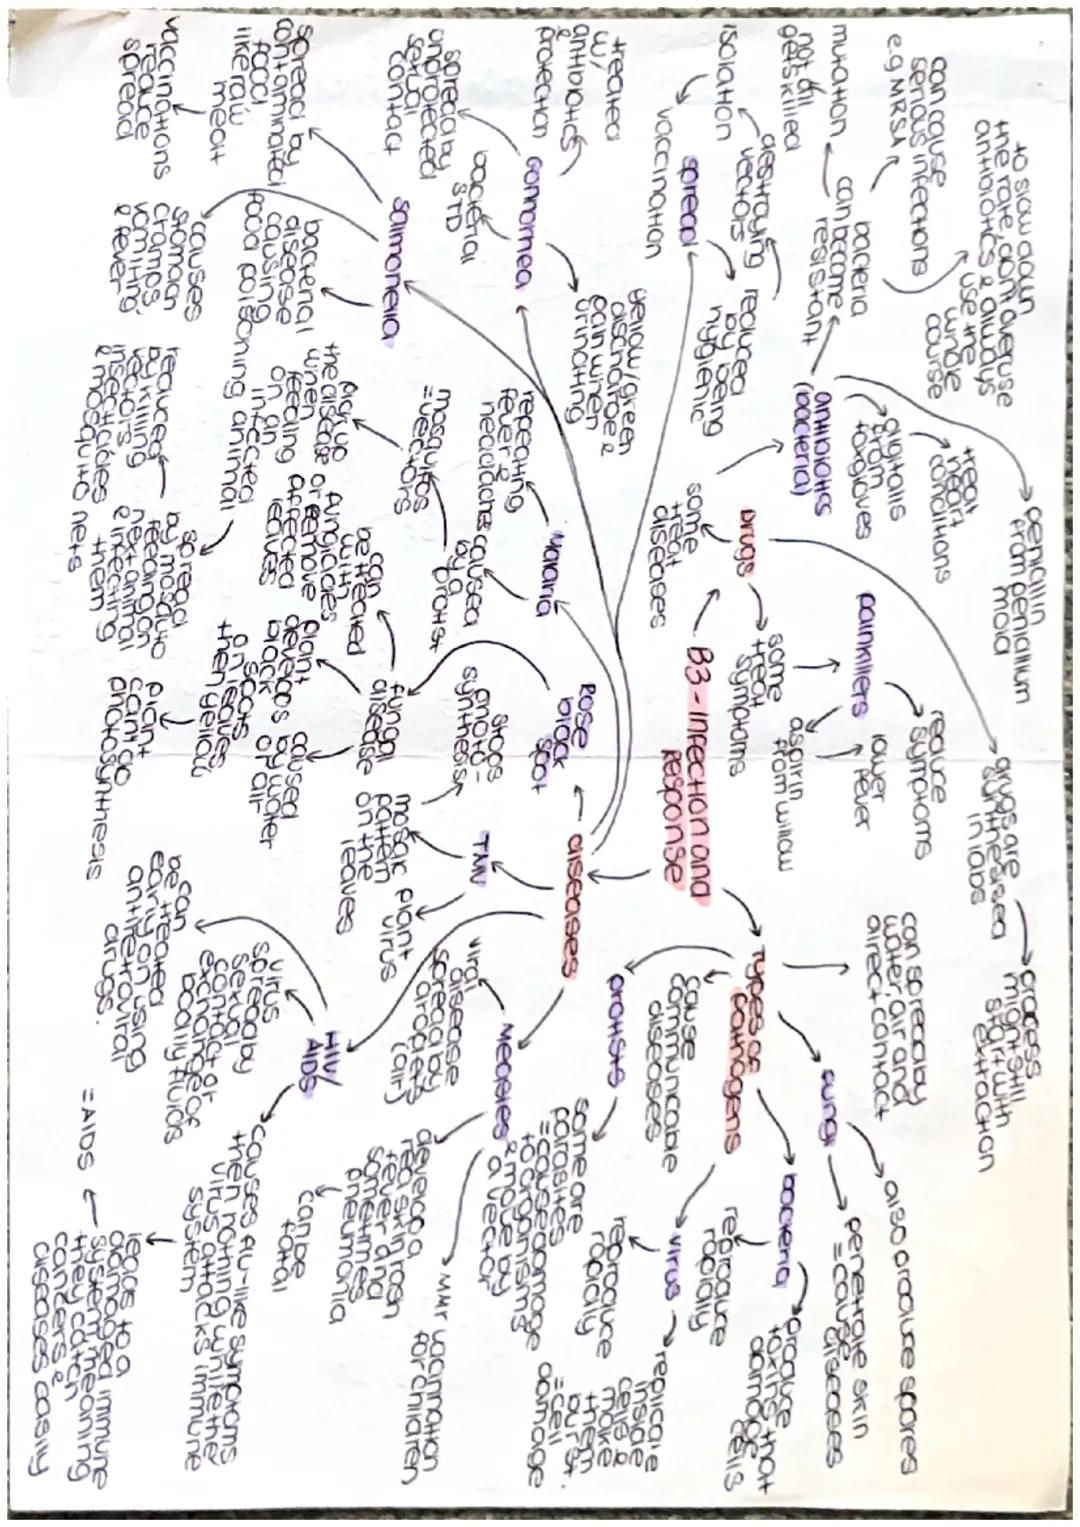 B3 - infection and
response
Drugs
some
treat
diseases
some
treat
symptoms
painkillers
reduce
symptoms
lower
fever
aspirin
from willow
drugs are
synthesised
in labs
process
might still
start with
extraction
antibiotics
(bacteria)
penicillin
from penicillium
mold
digitalis
from
foxgloves
treat
heart
conditions
bacteria
can become
resistant
mutation
not all
gets killed
can cause
serious infections
e.g MRSA
to slow down
the rate, dont overuse
antibiotics & always
use the
whole
course
Types of
pathogens
can spread by
water, air and
direct contact
cause
communicable
diseases
fungi
also produce spores
penetrate skin
= cause
diseases
bacteria
reproduce
rapidly
produce
toxins that
damage
cells
virus
reproduce
rapidly
replicate
inside
cells &
make
them
burst.
= cell
damage
protists
some are
parasites
= cause damage
to organisims
& move by
a vector
diseases
spread
reduced
by being
hygienic
destroying
vectors
isolation
vaccination
gonnorhea
yellow/green
discharge &
pain when
urinating
bacterial
STD
spread by
unprotected
sexual
contact
treated
w/
antibiotics
&
protection
salmonella
bacterial
disease
causing
food poisoning
spread by
contaminated
food
like raw
meat
vaccinations
reduce
spread
causes
stomach
cramps,
vomiting
& fever
Malaria
repeating
fever &
headaches
caused
by a
protist
mosquitos
= vectors
pick up
the disease
when
feeding
on an
infected
animal
spread
by mosquito
feeding on
next animal
& infecting
them
reduced
by killing
vectors
insecticides
& mosquito nets
Rose
black
spot
fungal
disease
can
be treated
with
fungicides
or remove
affected
leaves
plant
develops
black
spots
on leaves
then yellow
plant
cant do
photosynthesis
caused
by water
or air
TMV
plant
virus
mosaic
pattern
on the
leaves
stops
photo-
synthesis
Measles
viral
disease
spread by
droplets
(air)
develop a
red skin rash
fever and
sometimes
pneumonia
can be
fatal
MMR vaccination
for children
HIV/
AIDS
virus
spread by
sexual
contact or
exchange of
bodily fluids
can
be treated
early on using
antiretroviral
drugs.
causes flu-like symptoms
then nothing while the
virus attacks immune
system
leads to a
damaged immune
system meaning
they catch
cancers &
diseases easily
= AIDS